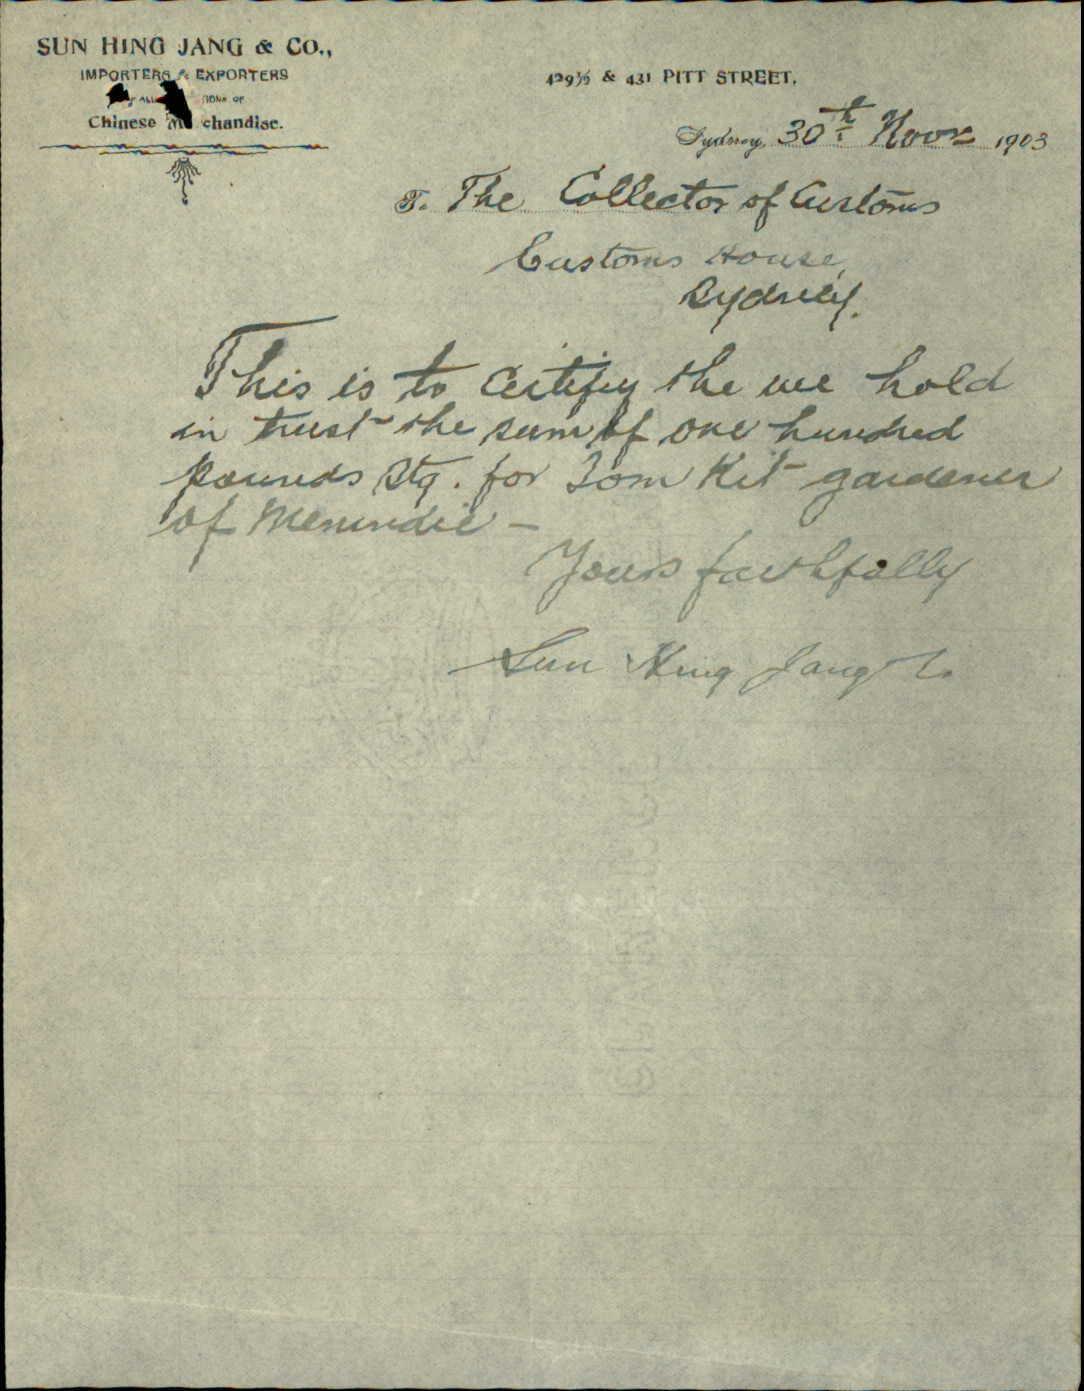 SUN HING JANG & CO.,
IMPORTERS & EXPORTERS
OF
Chinese chandise.
429½ & 431 PITT STREET.
Sydney, 30th Novr 1903
To. The Collector of Customs
Customs House,
Sydney.
This is to certify the we hold
in trust the sum of one hundred
pounds Stg. for Tom Kit gardener
of Menindie –
Yours faithfully
Sun Hing Jang & Co.